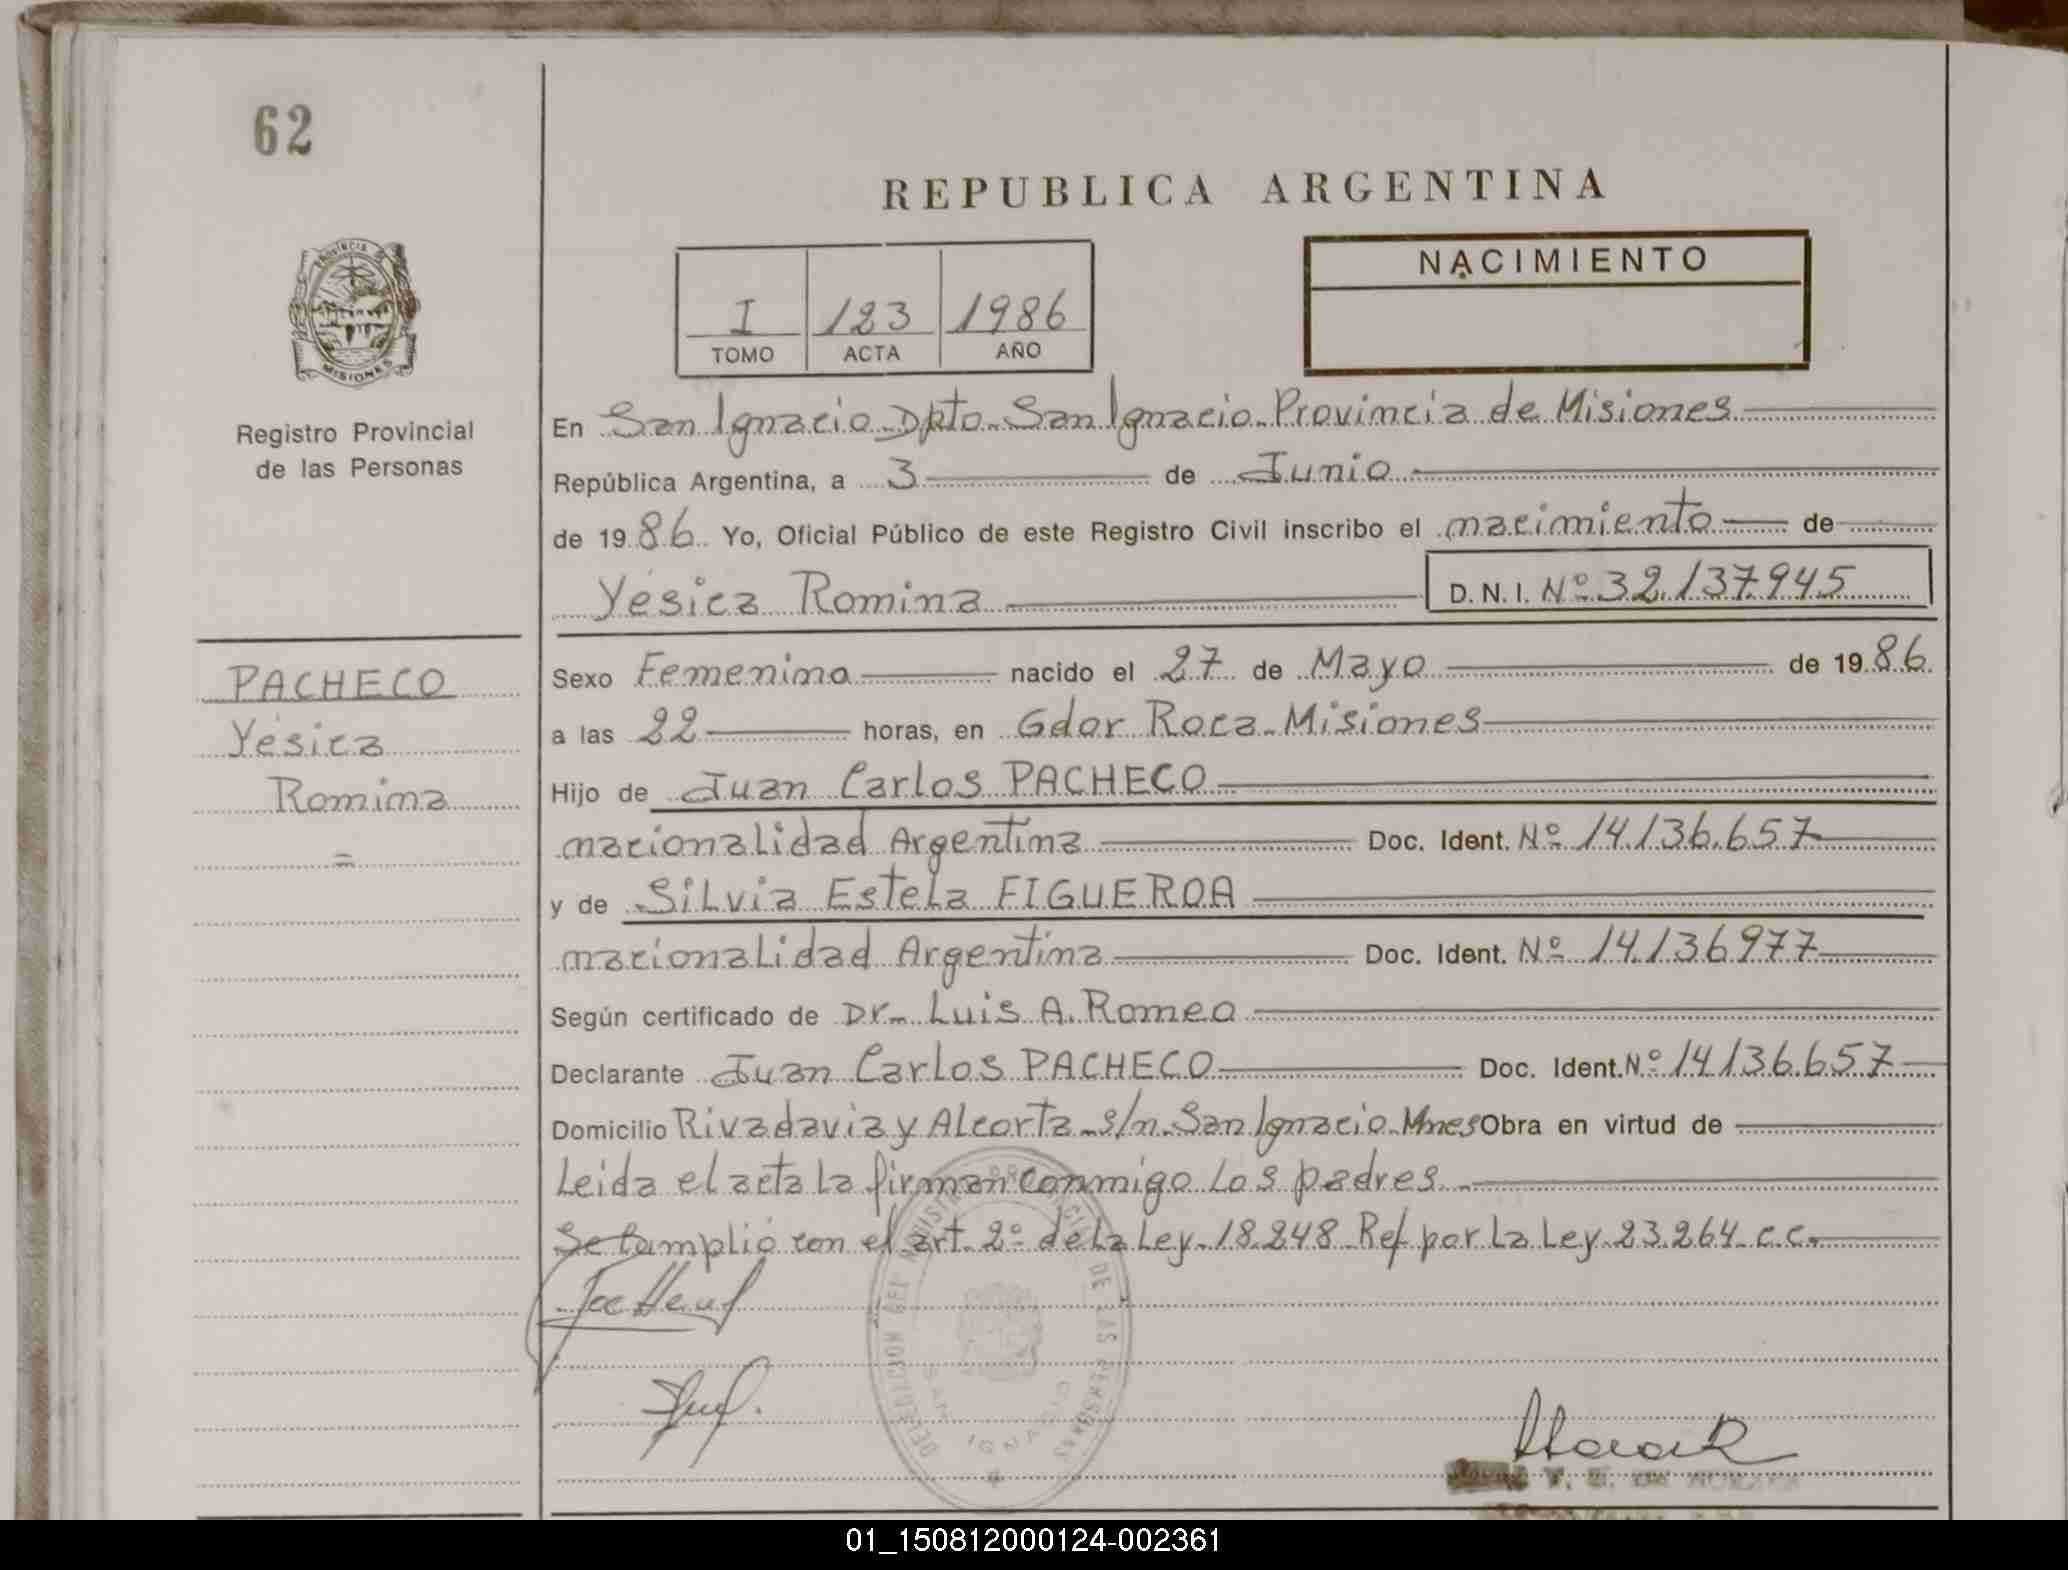 62
REPUBLICA ARGENTINA
PROVINCIA DE
MISIONES
Registro Provincial
de las Personas
NACIMIENTO
I 123 1986
TOMO ACTA AÑO
En San Ignacio Dpto. San Ignacio - Provincia de Misiones
República Argentina, a 3 de Junio
de 1986. Yo, Oficial Público de este Registro Civil inscribo el nacimiento de
Yésica Romina D. N. I. Nº 32.137.945
PACHECO
Yésica
Romina
=
Sexo Femenino nacido el 27 de Mayo de 1986.
a las 22 horas, en Gdor Roca - Misiones
Hijo de Juan Carlos PACHECO
nacionalidad Argentina Doc. Ident. Nº 14.136.657
y de Silvia Estela FIGUEROA
nacionalidad Argentina Doc. Ident. Nº 14.136.977
Según certificado de Dr. Luis A. Romeo
Declarante Juan Carlos PACHECO Doc. Ident. Nº 14.136.657
Domicilio Rivadavia y Alcorta - s/n - San Ignacio - Mnes Obra en virtud de
Leida el acta la firman conmigo los padres
Se cumplió con el art. 2º de la Ley 18.248 Ref por la Ley 23.264 c.c.
DELEGACION DEL REGISTRO PROVINCIAL DE LAS PERSONAS
SAN IGNACIO
01_150812000124-002361